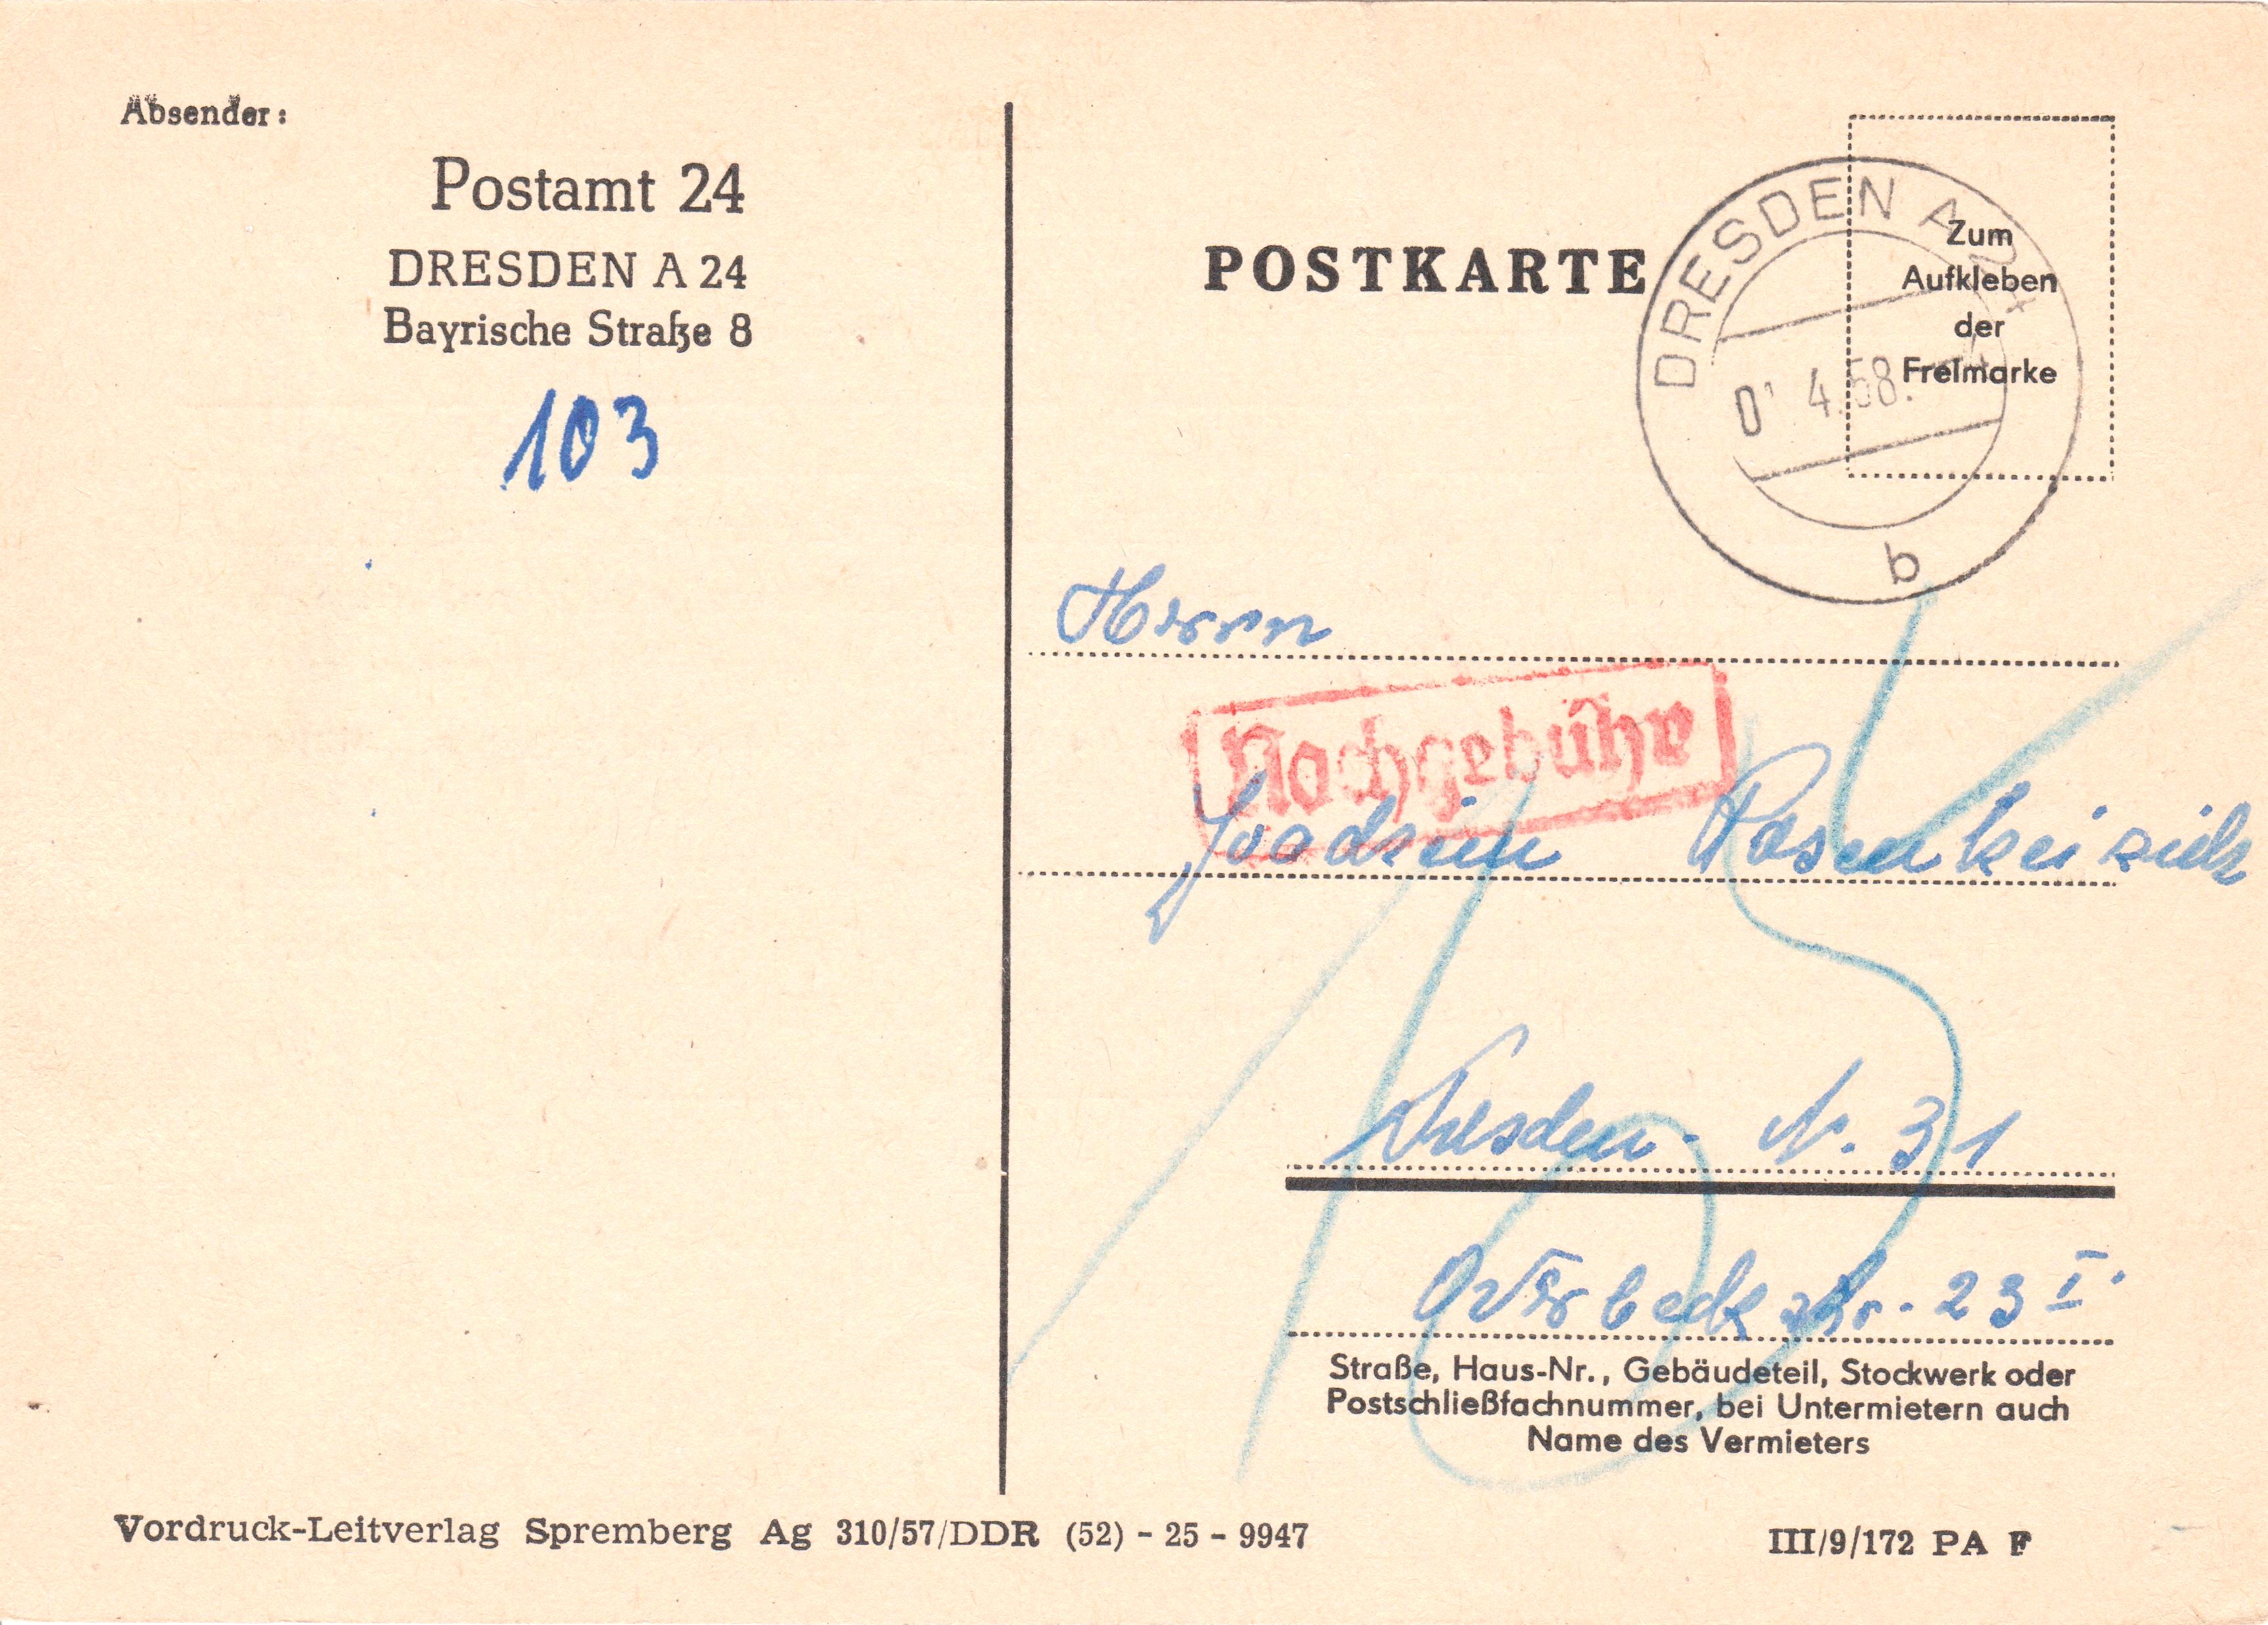 Absender:
Postamt 24
DRESDEN A 24
Bayrische Straße 8
103
POSTKARTE
DRESDEN A 24
4.58.
b
Zum
Aufkleben
der
Freimarke
Herrn
Nachgebühr
Joachim
Dresden - N. 31
Overbeckstr. 23 I.
15
Straße, Haus-Nr., Gebäudeteil, Stockwerk oder
Postschließfachnummer, bei Untermietern auch
Name des Vermieters
Vordruck-Leitverlag Spremberg Ag 310/57/DDR (52) - 25 - 9947
III/9/172 PA F